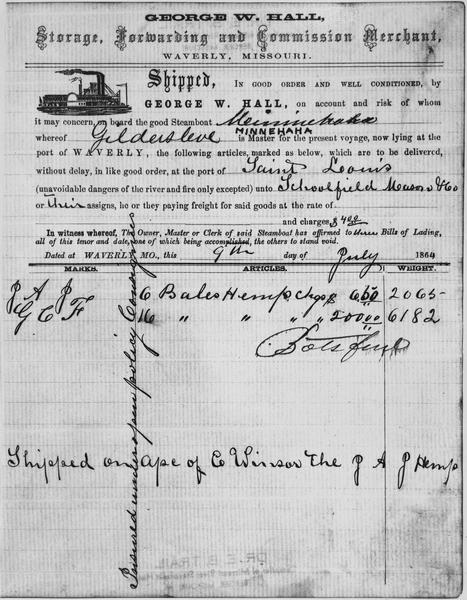 GEORGE W. HALL,
Storage, Forwarding and Commission Merchant,
WAVERLY, MISSOURI.
Shipped, IN GOOD ORDER AND WELL CONDITIONED, BY
GEORGE W. HALL, on account and risk of whom
it may concern, on board the good Steamboat Meinnehaha
MINNEHAHA
whereof Gildersleve is Master for the present voyage, now lying at the
port of WAVERLY, the following articles, marked as below, which are to be delivered,
without delay, in like good order, at the port of Saint Louis
(unavoidable dangers of the river and fire only excepted) unto Schoolfield Mason & Co
or their assigns, he or they paying freight for said goods at the rate of
and charges $4
In witness whereof, The Owner, Master or Clerk of said Steamboat has affirmed to three Bills of Lading,
all of this tenor and date, one of which being accomplished, the others to stand void.
Dated at WAVERLY MO., this 9th day of July 1864
MARKS. ARTICLES. WEIGHT.
J A J 6 Bales Hemp chgs 6.50 2065
G C F 16 " " " " 20.00 6182
Botsford
Shipped on of E Winsor The J A J Hemp
Insured under open policy Consignees
DR. E. B. TRAIL